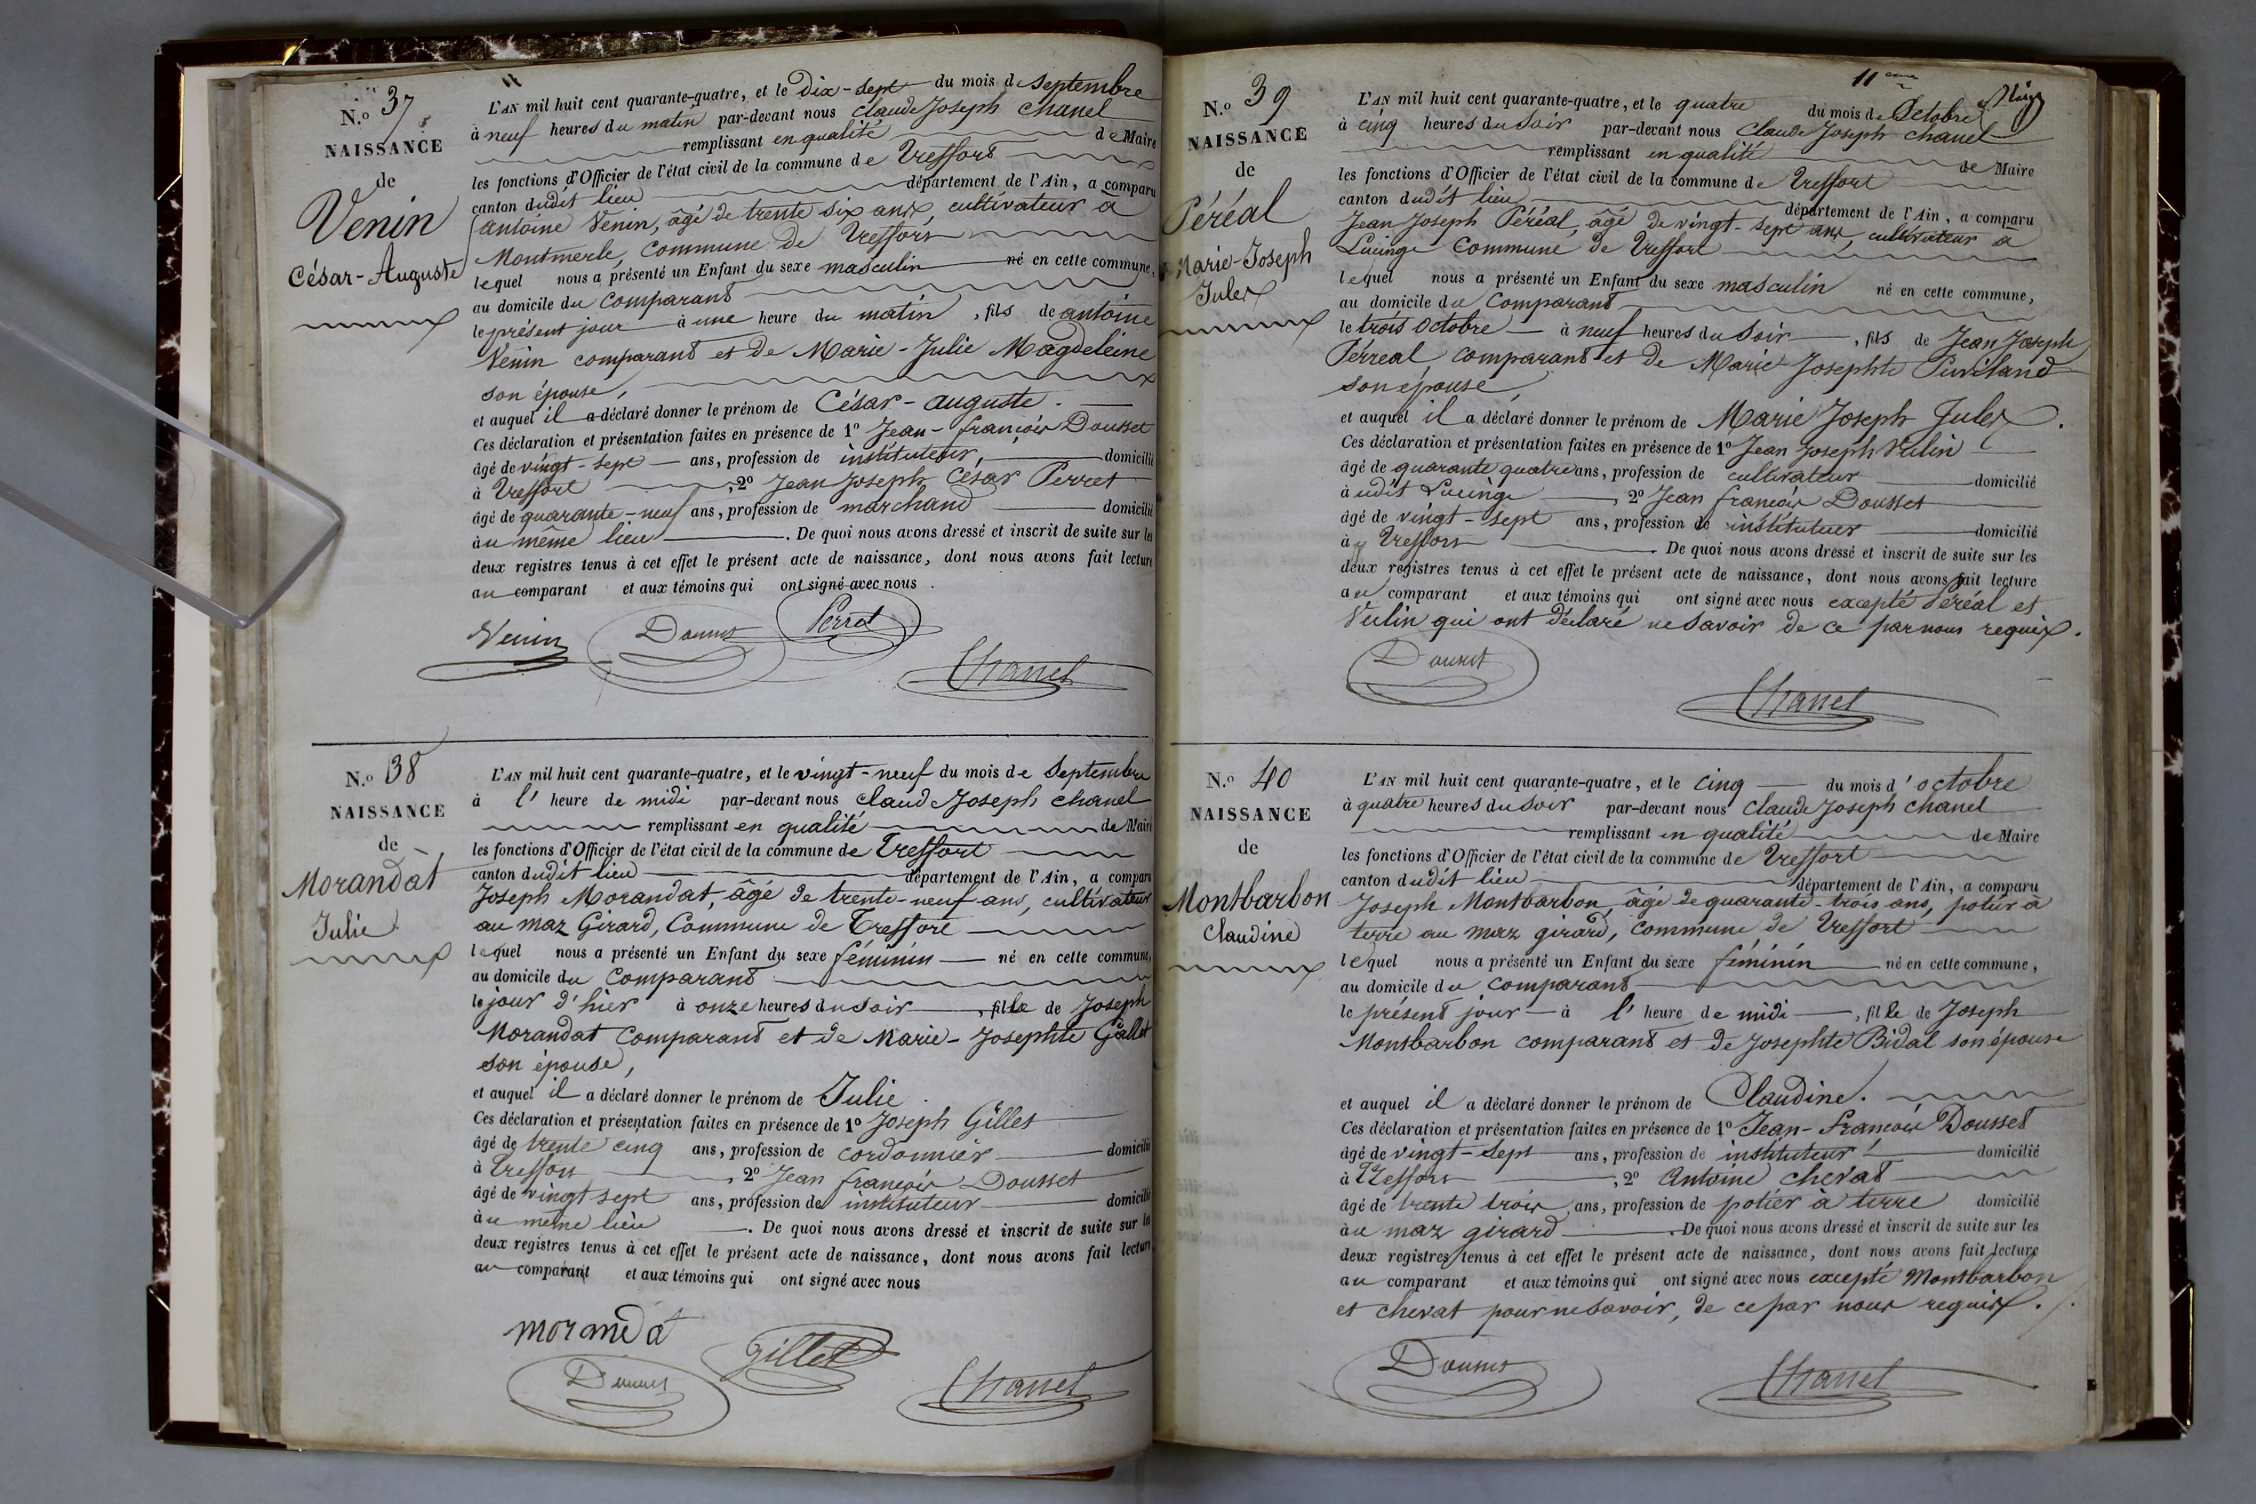 N.o 37
NAISSANCE
de
Venin
César-Auguste
L'AN mil huit cent quarante-quatre, et le Dix-sept du mois de Septembre
à neuf heures du matin par-devant nous Claude Joseph Chanel
remplissant en qualité de Maire
les fonctions d'Officier de l'état civil de la commune de Treffort
canton dudit lieu département de l'Ain, a comparu
antoine Venin, âgé de trente six ans, cultivateur à
Montmerle, Commune de Treffort
lequel nous a présenté un Enfant du sexe masculin né en cette commune,
au domicile du Comparant
le présent jour à une heure du matin, fils de antoine
Venin comparant et de Marie-Julie Magdeleine
son épouse,
et auquel il a déclaré donner le prénom de César-auguste.
Ces déclaration et présentation faites en présence de 1o Jean-françois Dousset
âgé de vingt-sept ans, profession de instituteur, domicilié
à Treffort, 2o Jean Joseph César Perret
âgé de quarante-neuf ans, profession de marchand domicilié
au même lieu. De quoi nous avons dressé et inscrit de suite sur les
deux registres tenus à cet effet le présent acte de naissance, dont nous avons fait lecture
au comparant et aux témoins qui ont signé avec nous.
Venin Dousset Perret
Chanel
N.o 38
NAISSANCE
de
Morandat
Julie
L'AN mil huit cent quarante-quatre, et le vingt-neuf du mois de Septembre
à l' heure de midi par-devant nous Claude Joseph Chanel
remplissant en qualité de Maire
les fonctions d'Officier de l'état civil de la commune de Treffort
canton dudit lieu département de l'Ain, a comparu
Joseph Morandat, âgé de trente-neuf ans, cultivateur
au maz Girard, Commune de Treffort
lequel nous a présenté un Enfant du sexe féminin né en cette commune,
au domicile du Comparant
le jour d'hier à onze heures du soir, fille de Joseph
Morandat Comparant et de Marie-Josephte Gallet
son épouse,
et auquel il a déclaré donner le prénom de Julie.
Ces déclaration et présentation faites en présence de 1o Joseph Gillet
âgé de trente cinq ans, profession de cordonnier domicilié
à Treffort, 2o Jean françois Dousset
âgé de vingt sept ans, profession de instituteur domicilié
au même lieu. De quoi nous avons dressé et inscrit de suite sur les
deux registres tenus à cet effet le présent acte de naissance, dont nous avons fait lecture
au comparant et aux témoins qui ont signé avec nous
morandat
Gillet
Dousset Chanel
11eme
N.o 39
NAISSANCE
de
Péréal
Marie-Joseph
Jules
L'AN mil huit cent quarante-quatre, et le quatre du mois de Octobre
à cinq heures du Soir par-devant nous Claude Joseph Chanel
remplissant en qualité de Maire
les fonctions d'Officier de l'état civil de la commune de Treffort
canton dudit lieu département de l'Ain, a comparu
Jean Joseph Péréal, âgé de vingt-sept ans, cultivateur à
Lucinge Commune de Treffort
lequel nous a présenté un Enfant du sexe masculin né en cette commune,
au domicile du Comparant
le trois Octobre à neuf heures du Soir, fils de Jean Joseph
Pérreal, comparant et de Marie Josephte
son épouse,
et auquel il a déclaré donner le prénom de Marie Joseph Jules.
Ces déclaration et présentation faites en présence de 1o Jean Joseph Vulin
âgé de quarante quatre ans, profession de cultivateur domicilié
audit Lucinge, 2o Jean françois Dousset
âgé de vingt-sept ans, profession de instituteur domicilié
à Treffort. De quoi nous avons dressé et inscrit de suite sur les
deux registres tenus à cet effet le présent acte de naissance, dont nous avons fait lecture
au comparant et aux témoins qui ont signé avec nous excepté Péréal et
Vulin qui ont déclaré ne savoir de ce par nous requis.
Dousset
Chanel
N.o 40
NAISSANCE
de
Montbarbon
Claudine
L'AN mil huit cent quarante-quatre, et le cinq du mois d'octobre
à quatre heures du soir par-devant nous Claude Joseph Chanel
remplissant en qualité de Maire
les fonctions d'Officier de l'état civil de la commune de Treffort
canton dudit lieu département de l'Ain, a comparu
Joseph Montbarbon, âgé de quarante-trois ans, potier à
terre au maz girard, commune de Treffort
lequel nous a présenté un Enfant du sexe féminin né en cette commune,
au domicile du comparant
le présent jour à l' heure de midi, fille de Joseph
Montbarbon comparant et de Josephte Bidal son épouse
et auquel il a déclaré donner le prénom de Claudine.
Ces déclaration et présentation faites en présence de 1o Jean-françois Dousset
âgé de vingt-sept ans, profession de instituteur domicilié
à Treffort, 2o Antoine chevat
âgé de trente trois ans, profession de potier à terre domicilié
au maz girard. De quoi nous avons dressé et inscrit de suite sur les
deux registres tenus à cet effet le présent acte de naissance, dont nous avons fait lecture
au comparant et aux témoins qui ont signé avec nous excepté Montbarbon
et chevat pour ne savoir, de ce par nous requis.
Dousset Chanel